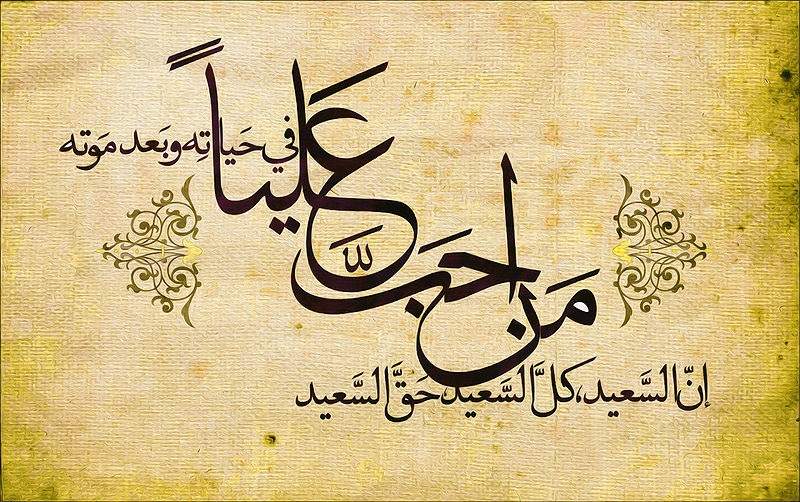 إنّ السَّعيد، كلَّ السَّعيد، حَقَّ السَّعيد
مَن احَبَّ عَلياً
في حَياتِه وبَعد مَوته